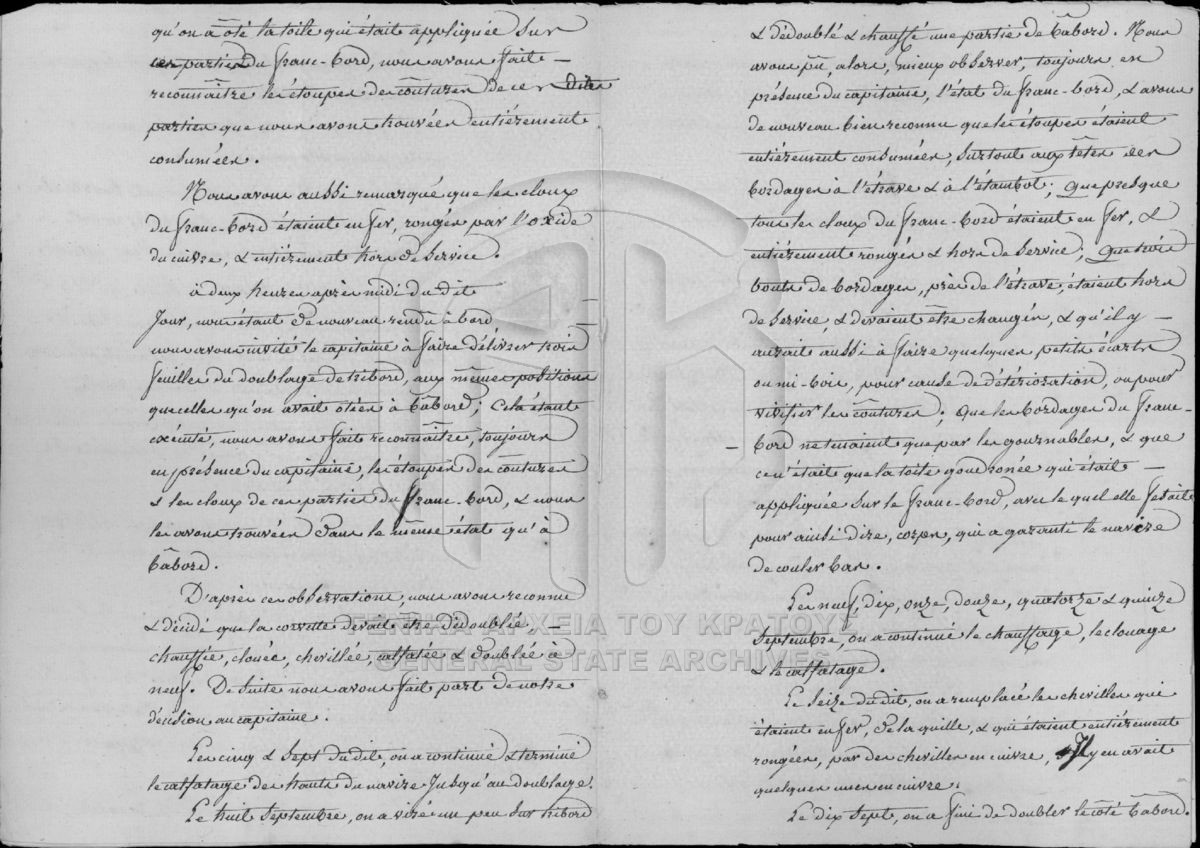 qu'on a ôté la toile qui était appliquée sur
ces parties du franc-bord, nous avons fait —
reconnaître les étoupes des coutures de ces dites
parties que nous avons trouvées entiérement
consumées.
Nous avons aussi remarqué que les cloux
du franc-bord étaient en fer, rongés par l'oxide
du cuivre, & entiérement hors de service.
à deux heures après midi du dit
jour, nous étant de nouveau rendu à bord —
nous avons invité le capitaine à faire délivrer trois
feuilles du doublage de tribord, aux mêmes positions
que celles qu'on avait otées à bâbord; Cela étant
exécuté, nous avons fait reconnaître, toujours
en présence du capitaine, les étoupes des coutures
& les cloux de ces parties du franc-bord, & nous
les avons trouvées dans le même état qu'à
bâbord.
D'après ces observations, nous avons reconnu
& décidé que la corvette devait être dédoublée, —
chauffée, clouée, chevillée, calfatée & doublée à
neuf. De suite nous avons fait part de notre
décision au capitaine.
Les cinq & sept du dit, on a continué & terminé
le calfatage des hauts du navire jusqu'au doublage.
Le huit septembre, on a viré un peu sur tribord
& dédoublé & chauffé une partie de bâbord. Nous
avons pu, alors, mieux observer, toujours en
présence du capitaine, l'état du franc-bord, & avons
de nouveau bien reconnu que les étoupes étaient
entiérement consumées, surtout aux têtes des
bordages à l'étrave & à l'étambot; que presque
tous les cloux du franc-bord étaient en fer, &
entiérement rongés & hors de service; que trois
bouts de bordages, près de l'étrave, étaient hors
de service, & devaient être changés, & qu'il y —
aurait aussi à faire quelques petits écarts
ou mi-bois, pour cause de détérioration, ou pour
vivifier les coutures; que les bordages du franc-
bord ne tenaient que par les gournables, & que
ce n'était que la toile goudronée qui était —
appliquée sur le franc-bord, avec le quel elle fesait
pour ainsi dire, corps, qui a garanti le navire
de couler bas.
Les neuf, dix, onze, douze, quatorze & quinze
septembre, on a continué le chauffage, le clouage
& le calfatage.
Le seize du dit, on a remplacé les chevilles qui
étaient en fer, de la quille, & qui étaient entiérement
rongées, par des chevilles en cuivre, Il y en avait
quelques unes en cuivre.
Le dix sept, on a fini de doubler le coté bâbord.
ΓΕΝΙΚΑ ΑΡΧΕΙΑ ΤΟΥ ΚΡΑΤΟΥΣ
GENERAL STATE ARCHIVES